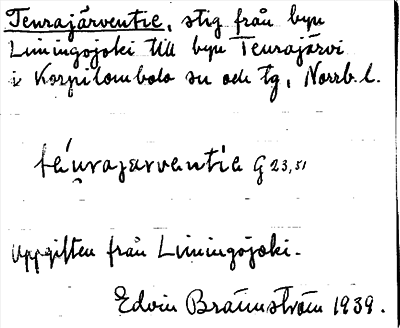 Teurajärventie, stig från byn
Liningojoki till byn Teurajärvi
i Korpilombolo sn och tg, Norrb. l.
téurajærventie G 23,51
Uppgiften från Liningojoki.
Edvin Brännström 1939.